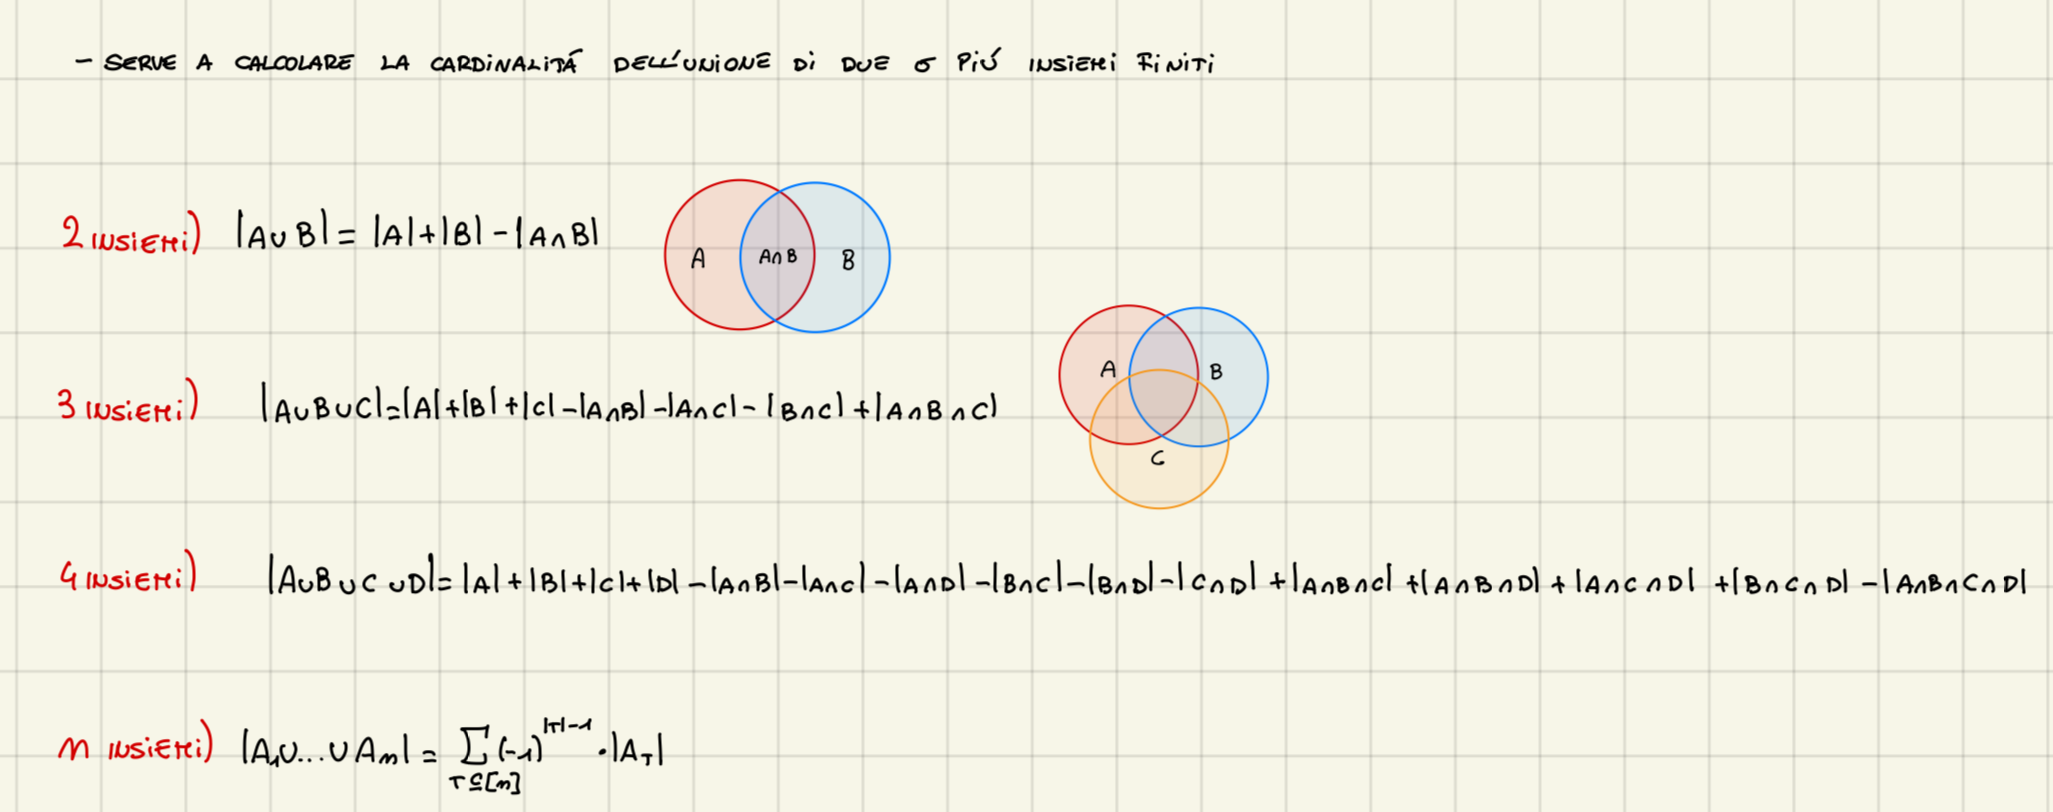 - SERVE A CALCOLARE LA CARDINALITÁ DELL'UNIONE DI DUE O PIÚ INSIEMI FINITI
2 INSIEMI) |A∪B| = |A|+|B|-|A∩B|
A A∩B B
3 INSIEMI) |A∪B∪C|=|A|+|B|+|C|-|A∩B|-|A∩C|-|B∩C|+|A∩B∩C|
A B
C
4 INSIEMI) |A∪B∪C∪D|=|A|+|B|+|C|+|D|-|A∩B|-|A∩C|-|A∩D|-|B∩C|-|B∩D|-|C∩D|+|A∩B∩C|+|A∩B∩D|+|A∩C∩D|+|B∩C∩D|-|A∩B∩C∩D|
n INSIEMI) |A₁∪...∪Aₙ| = ∑ (-1)^|T|-1 · |A_T|
T⊆[n]